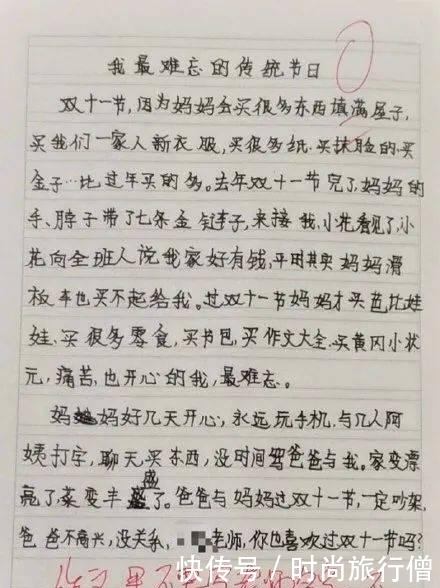 我最难忘的传统节日
双十一节,因为妈妈会买很多东西填满屋子,
买我们一家人新衣服,买很多纸.买抹脸的.买
金子…比过年买的多。去年双十一节完了,妈妈的
手、脖子带了七条金链子,来接我,小花看见了,小
花向全班人说我家好有钱,平田其实妈妈滑
板车也买不起给我。过双十一节妈妈才买芭比娃
娃、买很多零食,买书包,买作文大全.买黄冈小状
元,痛苦,也开心的我,最难忘。
妈妈好几天开心,永远玩手机,与几人阿
姨打字,聊天,买东西,没时间骂爸爸与我。家变漂
亮了,菜变丰盛了。爸爸与妈妈过双十一节,一定吵架,
爸爸不高兴,没关系,老师,你也喜欢过双十一节吗?
快传号/时尚旅行僧